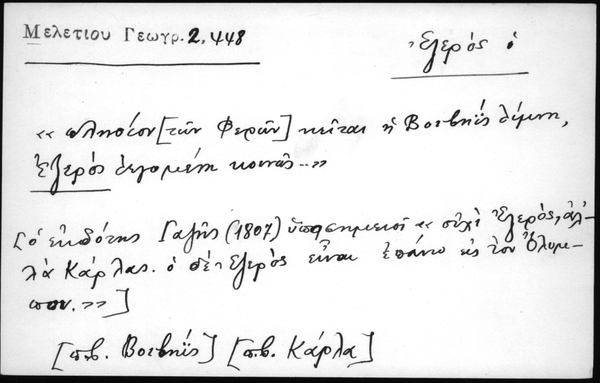 Μελετίου Γεωγρ. 2, 448
Ἐζερός ὁ
«πλησίον [τῶν Φερῶν] κεῖται ἡ Βοιβηΐς λίμνη,
Ἐζερός λεγομένη κοινῶς..»
[ὁ ἐκδότης Γαζῆς (1807) ὑποσημειοῖ «οὐχὶ Ἐζερός, ἀλ-
λὰ Κάρλας. ὁ δὲ Ἐζερὸς εἶναι ἐπάνω εἰς τὸν Ὄλυμ-
πον.»]
[π.β. Βοιβηΐς] [π.β. Κάρλα]